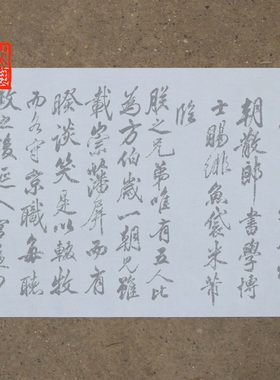 朝散郎書學博
士賜緋魚袋米芾
臨
朕之兄弟唯有五人比
為方伯歲一朝見雖
載崇藩屏而有
睽談笑是以輟牧
而各守京職每聽
政之後延入宮